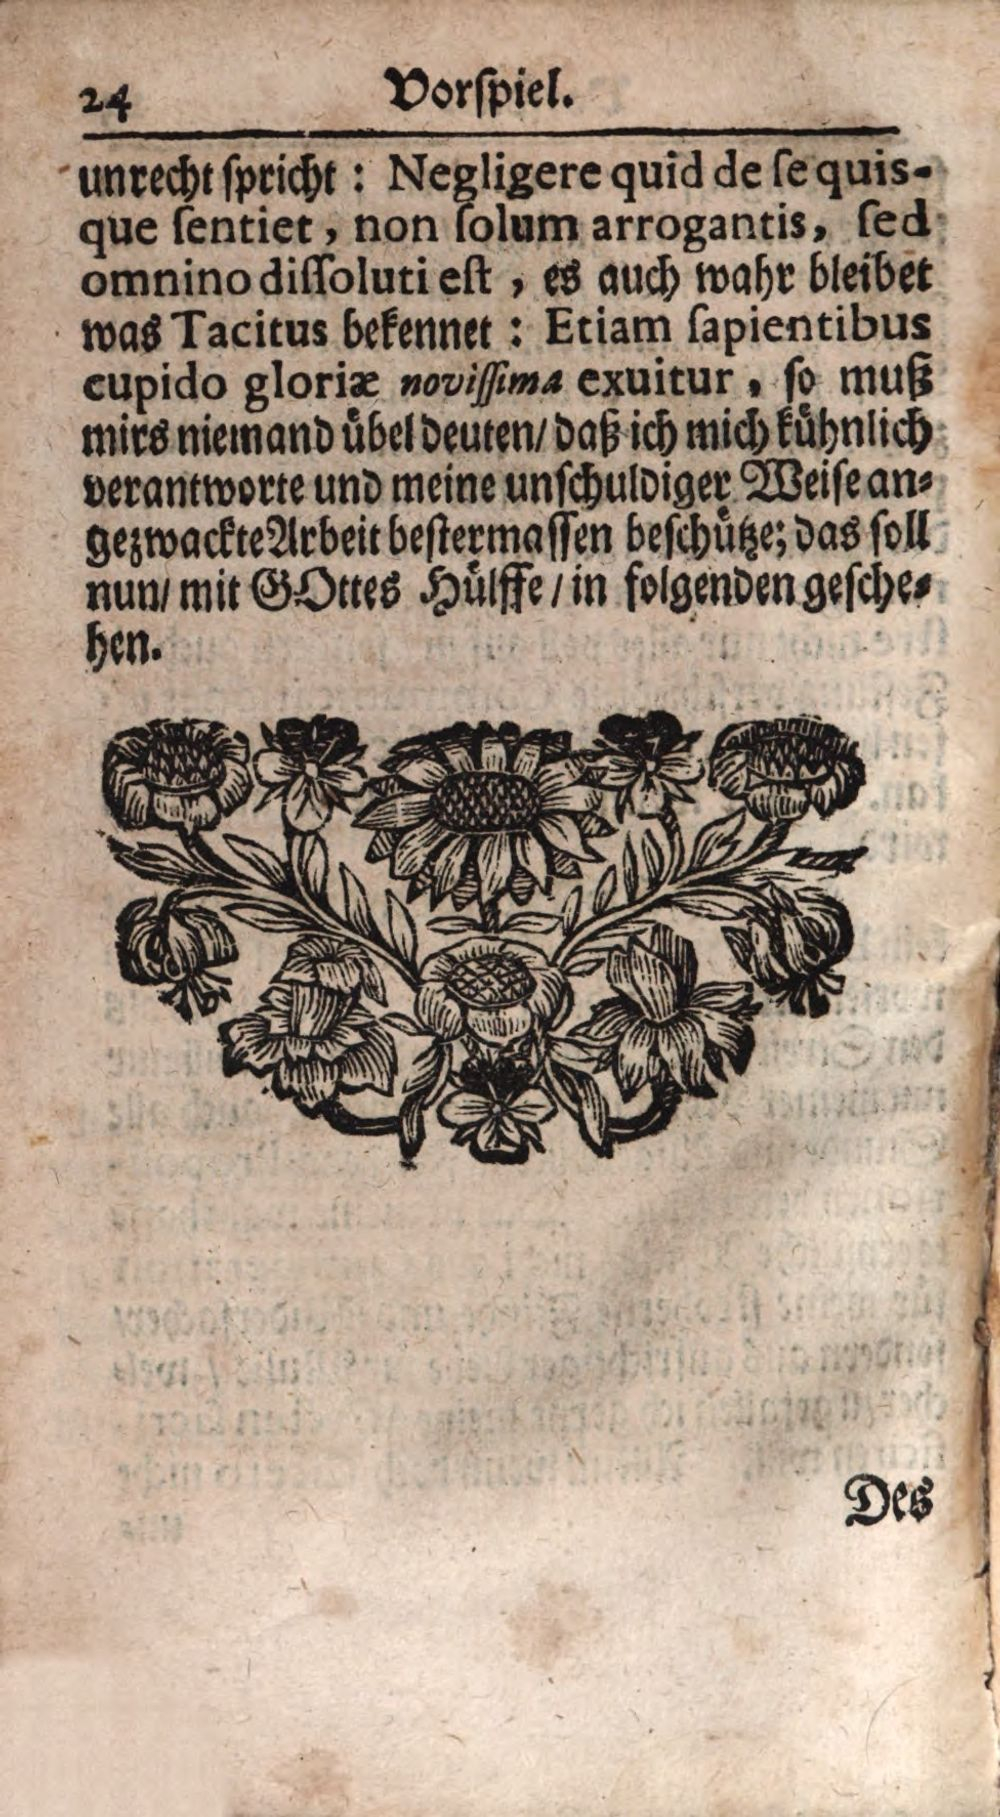 24 Vorſpiel.
unrecht ſpricht : Negligere quid de ſe quis-
que ſentiet, non ſolum arrogantis, ſed
omnino diſſoluti eſt, es auch wahr bleibet
was Tacitus bekennet : Etiam ſapientibus
cupido gloriæ noviſſima exuitur, ſo muß
mirs niemand uͤbel deuten/ daß ich mich kuͤhnlich
verantworte und meine unſchuldiger Weiſe an-
gezwackte Arbeit beſtermaſſen beſchuͤtze; das ſoll
nun/ mit GOttes Huͤlffe / in folgenden geſche-
hen.
Des